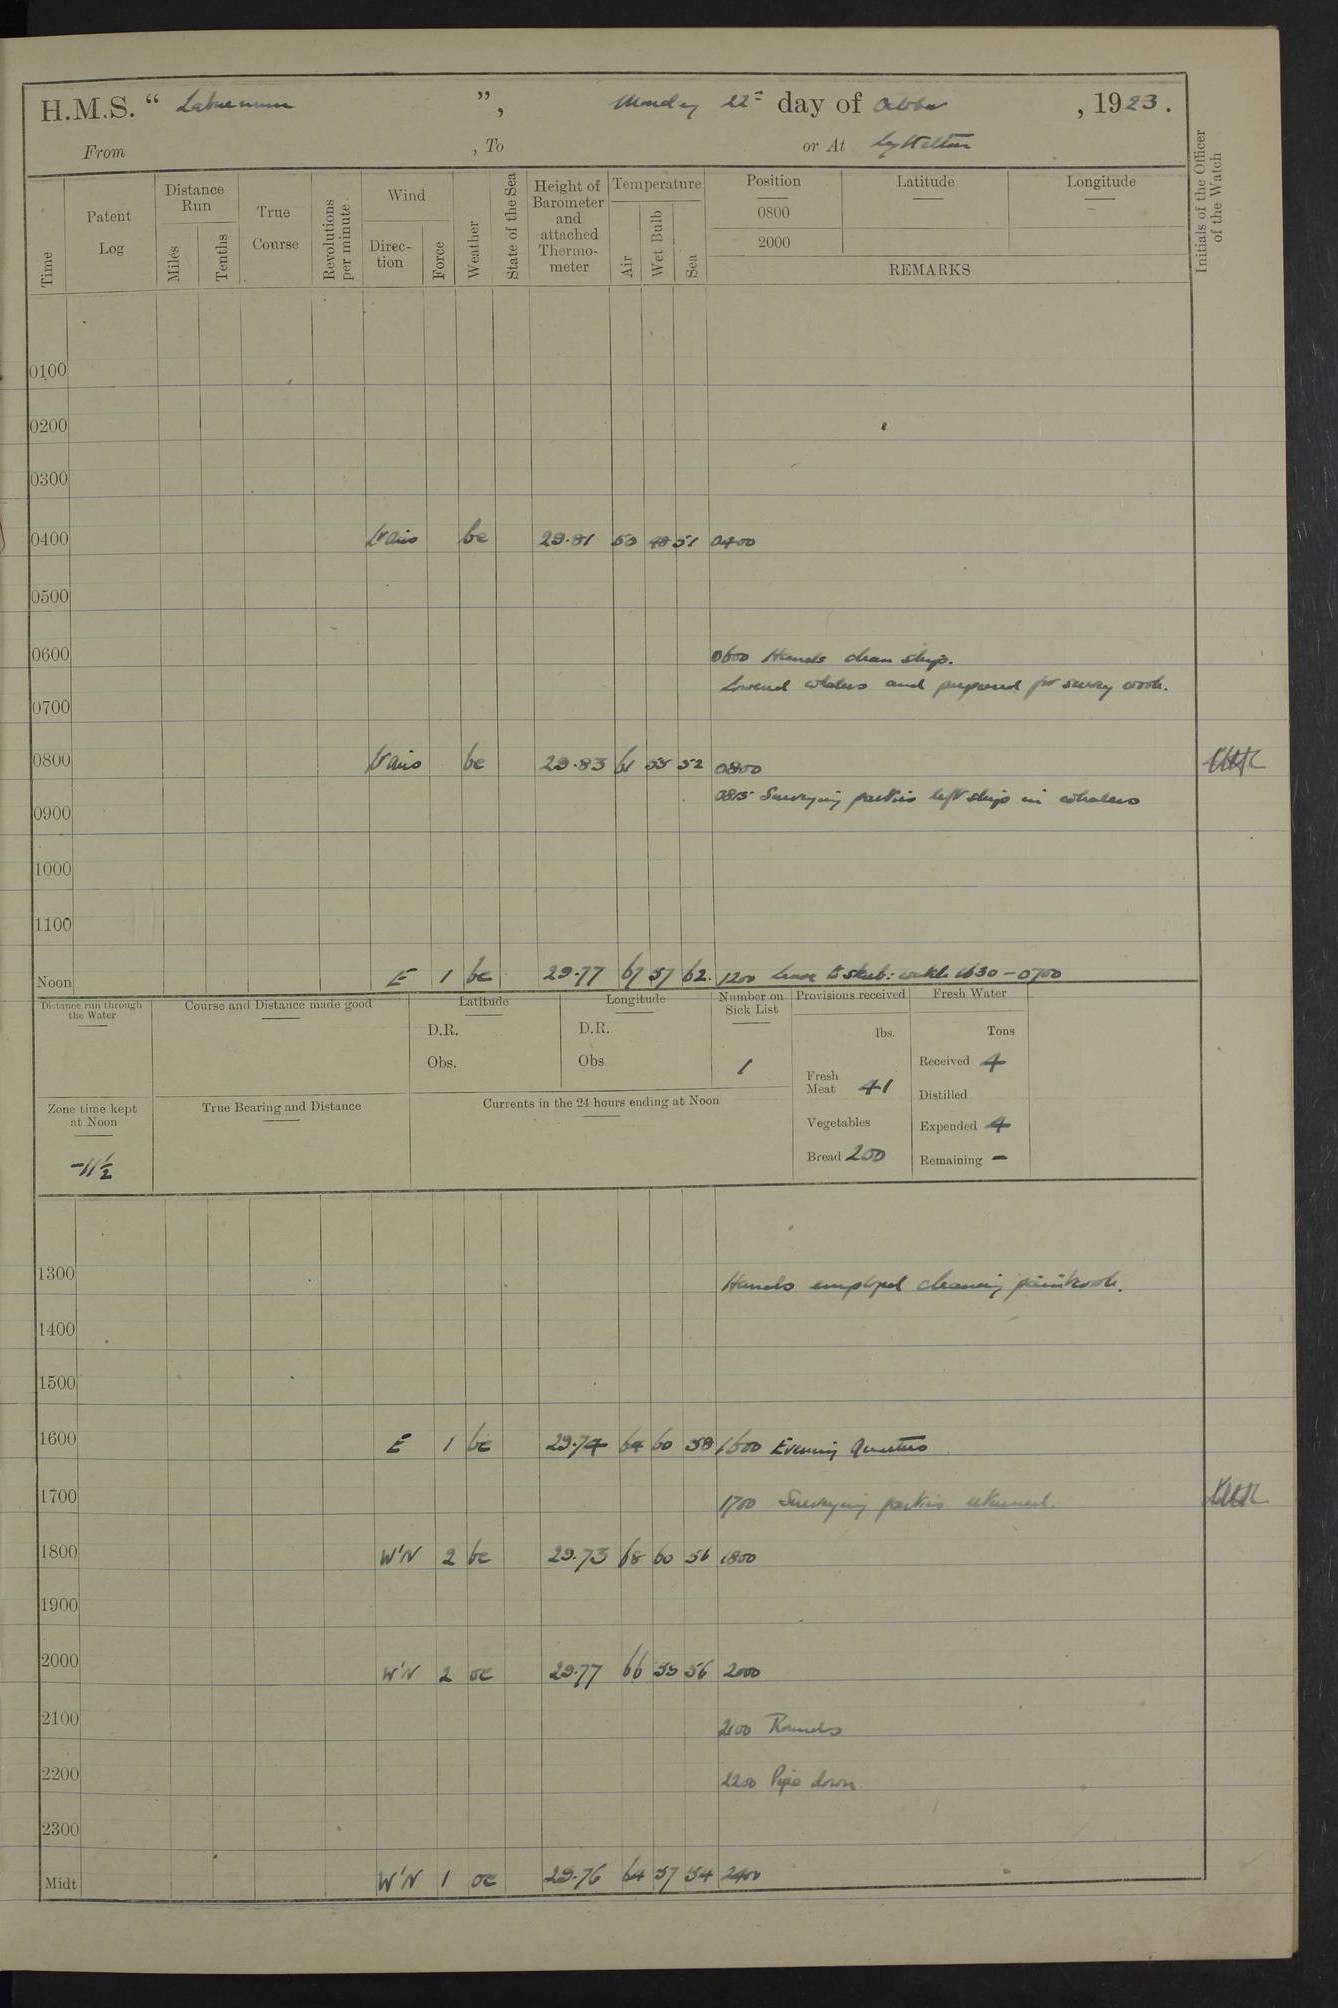 H.M.S. “ Laburnum ”, Monday 22nd day of October , 1923.
From , To or At Lyttelton
Time
Patent Log
Distance Run
Miles
Tenths
True Course
Revolutions per minute
Wind
Direction
Force
Weather
State of the Sea
Height of Barometer and attached Thermometer
Temperature
Air
Wet Bulb
Sea
Position
0800
2000
Latitude
Longitude
REMARKS
Initials of the Officer of the Watch
0100
0200
0300
0400 Vairs bc 29.81 50 48 51 0400
0500
0600 0600 Hands clean ship.
Lowered whalers and prepared for survey work.
0700
0800 Vairs bc 29.83 61 55 52 0800
0815 Surveying parties left ship in whalers
0900
1000
1100
Noon E 1 bc 29.77 67 57 62. 1200 Leave to starb: watch 1630 - 0700
Distance run through the Water
Course and Distance made good
Latitude
D.R.
Obs.
Longitude
D.R.
Obs
Number on Sick List
1
Provisions received
lbs.
Fresh Meat 41
Vegetables
Bread 200
Fresh Water
Tons
Received 4
Distilled
Expended 4
Remaining -
Zone time kept at Noon
-11½
True Bearing and Distance
Currents in the 24 hours ending at Noon
1300 Hands employed cleaning paintwork.
1400
1500
1600 E 1 bc 29.74 64 60 58 1600 Evening Quarters
1700 1700 Surveying parties returned.
1800 W'N 2 bc 29.73 68 60 56 1800
1900
2000 W'N 2 oc 29.77 66 59 56 2000
2100 2100 Rounds
2200 2200 Pipe down.
2300
Midt W'N 1 oc 29.76 64 57 54 2400